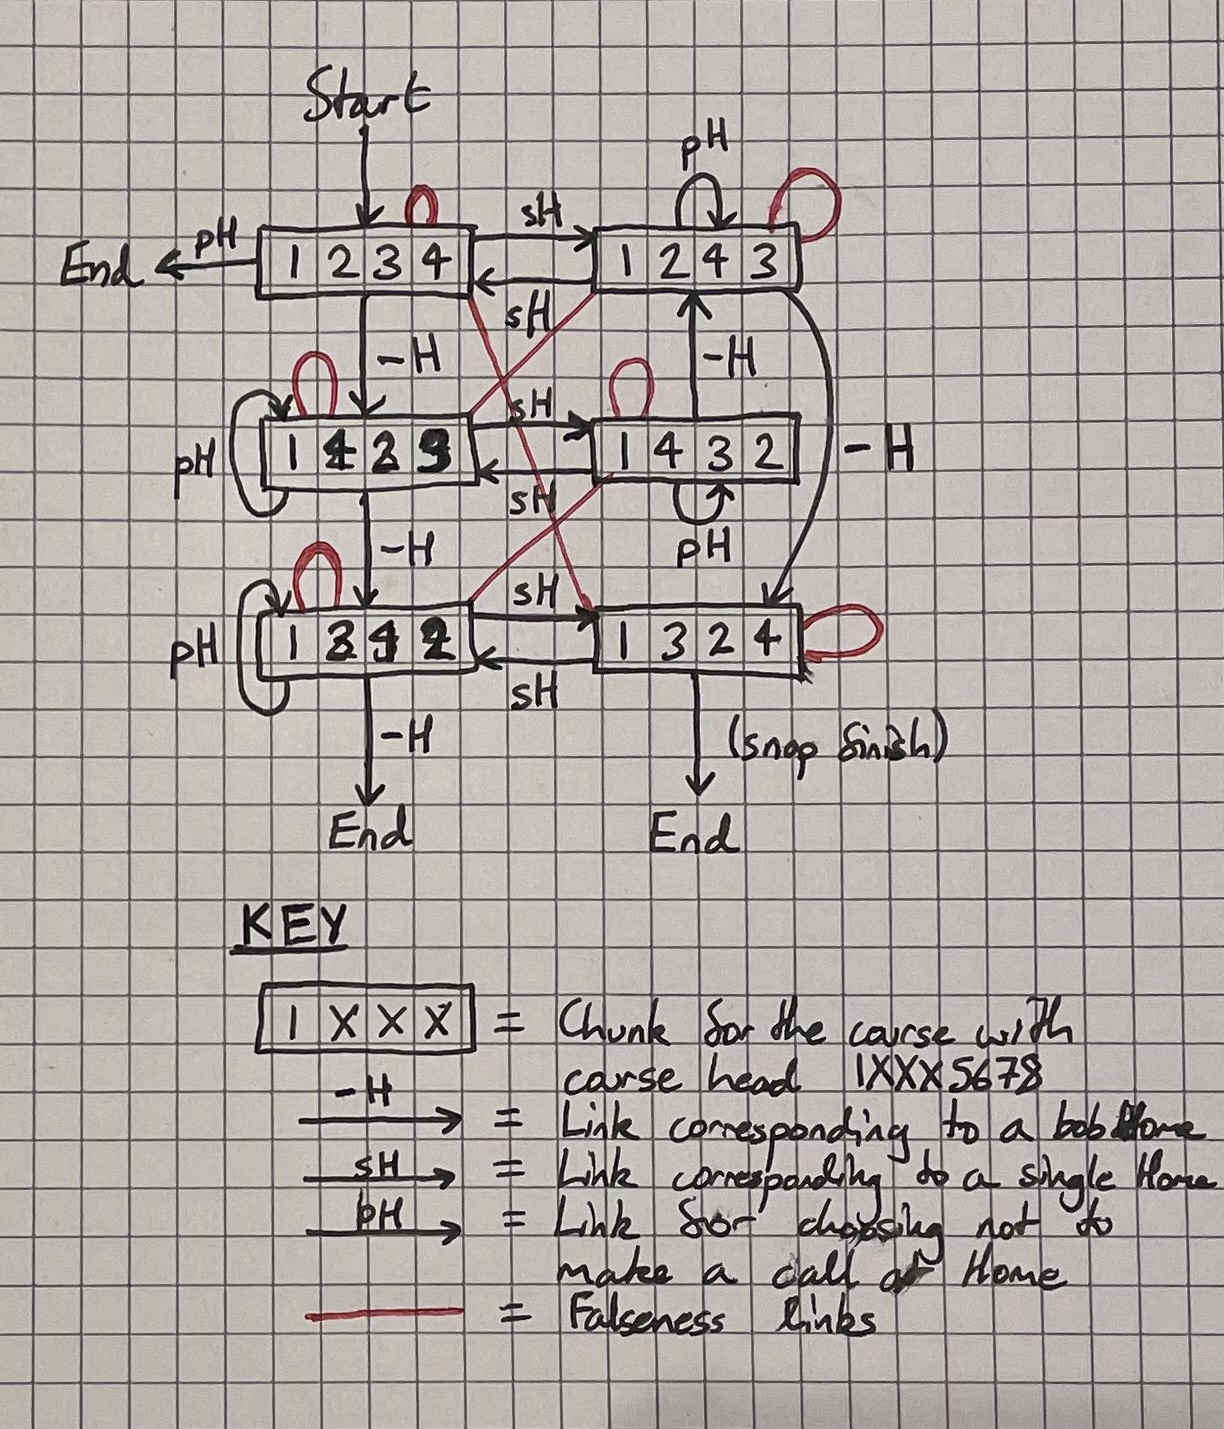 Start
pH
sH
End pH 1 2 3 4 1 2 4 3
sH
-H -H
sH
pH 1 4 2 3 1 4 3 2 -H
sH
-H pH
sH
pH 1 3 4 2 1 3 2 4
sH
-H (snap finish)
End End
KEY
1 X X X = Chunk for the course with
course head 1XXX5678
-H = Link corresponding to a bob Home
sH = Link corresponding to a single Home
pH = Link for choosing not to
make a call at Home
= Falseness links